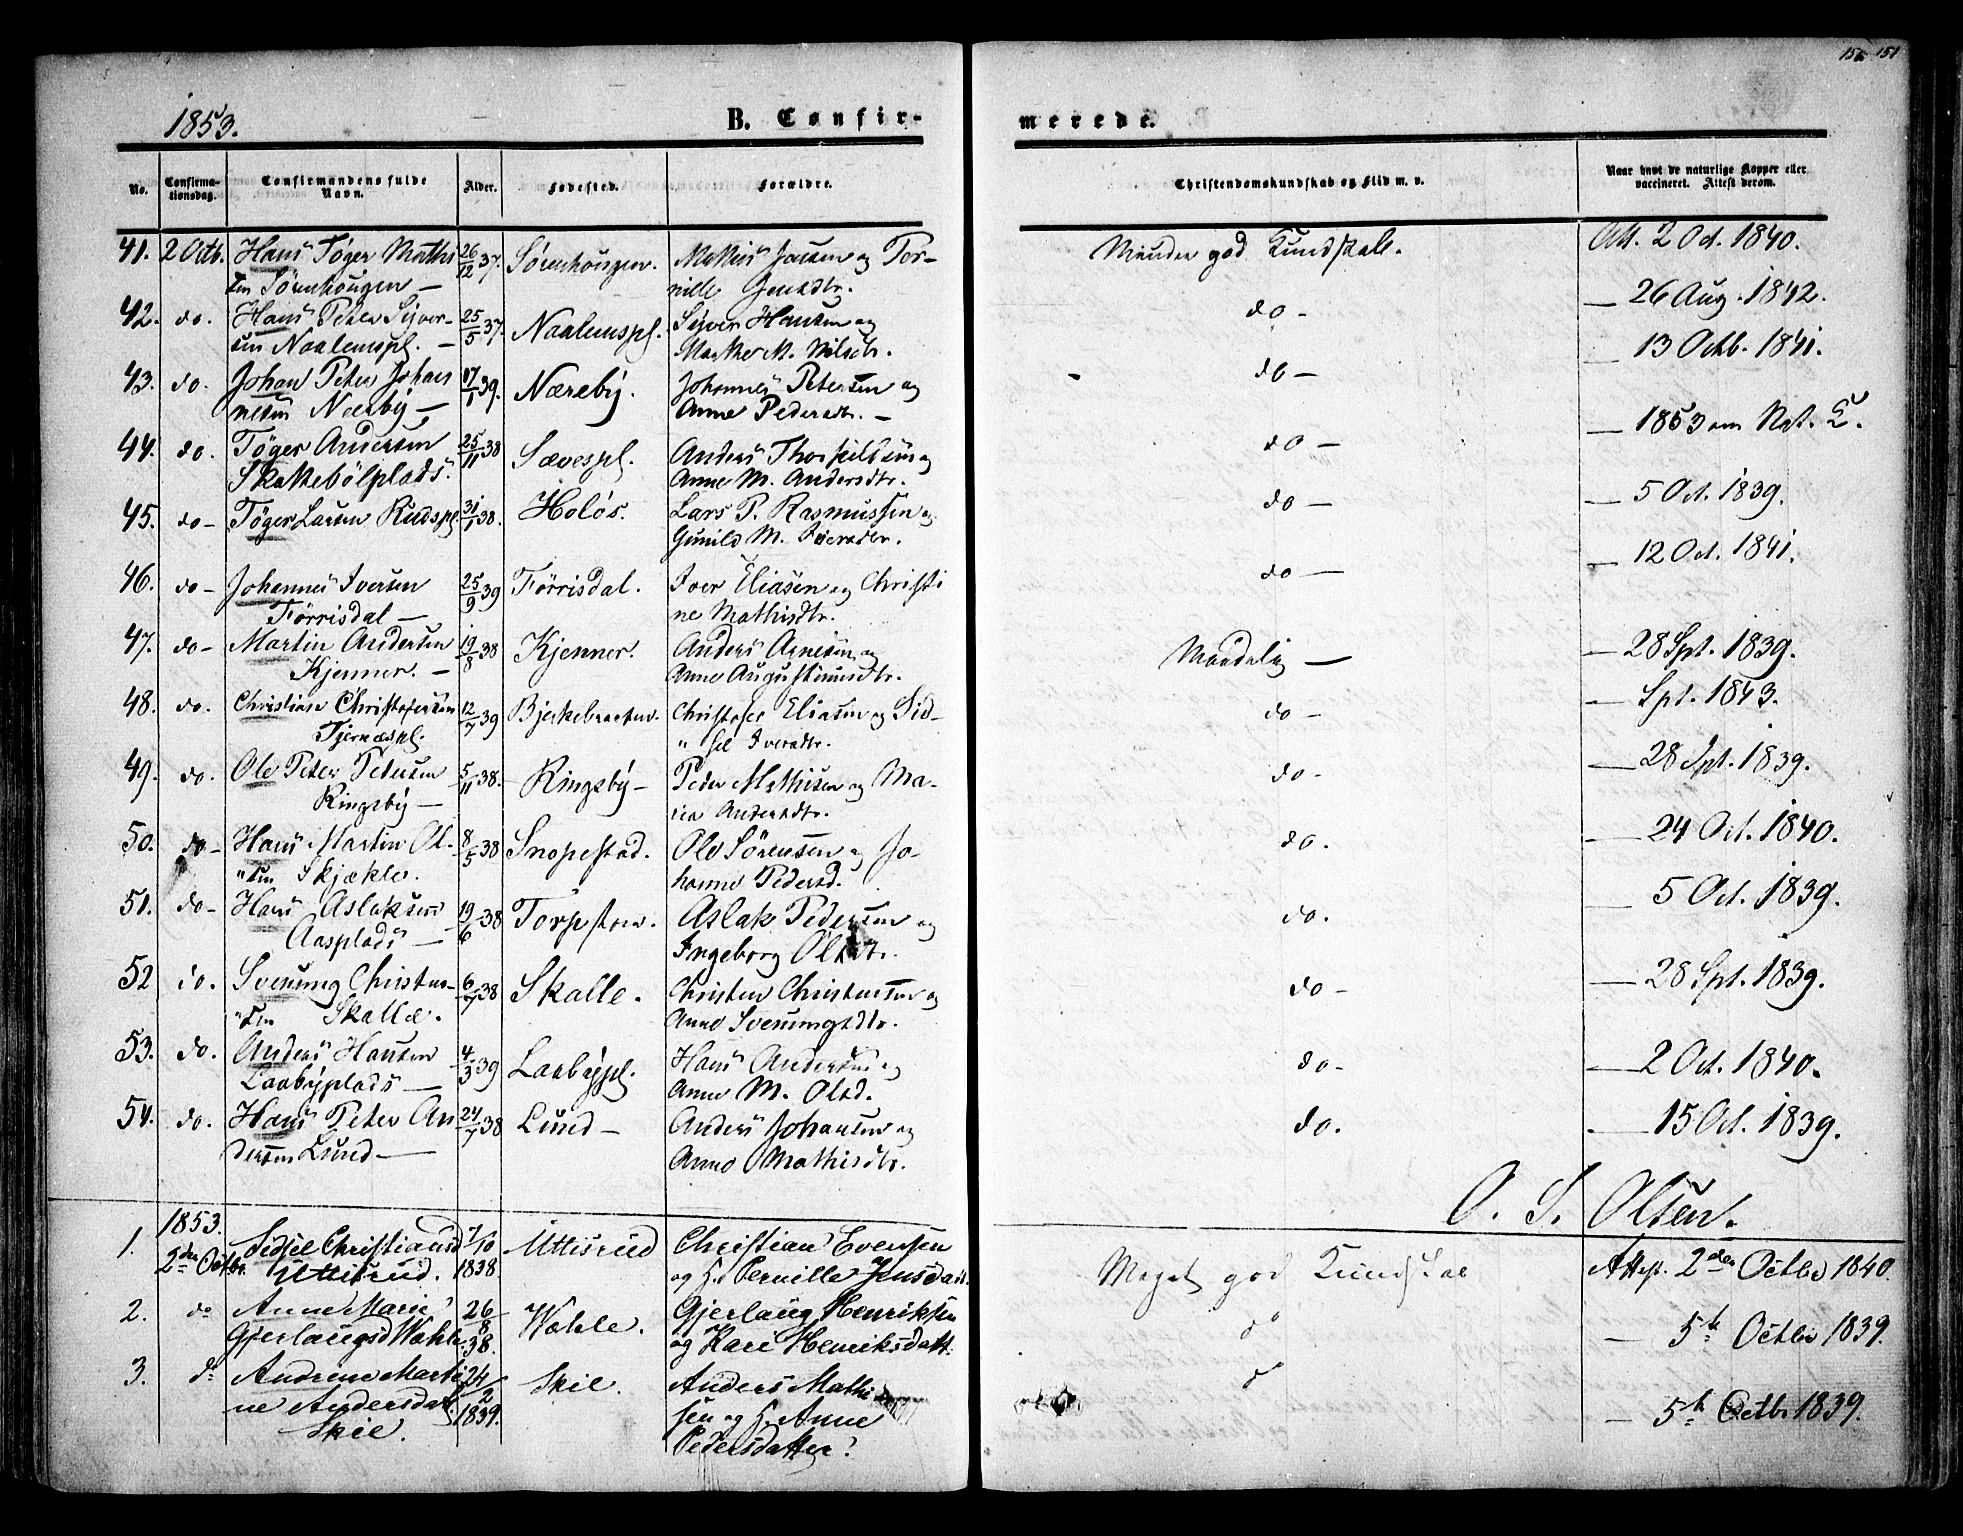 151
1853.
B. Confir-
merede.
No.
Confirma-
tionsdag.
Confirmandens fulde
Navn.
Alder.
Fødested.
Forældre.
Christendomskundskab og Flid m. v.
Naar havt de naturlige Kopper eller
vaccineret. Attest derom.
41. 2 Octb. Hans Töger Mathi 26/12 37. Sörenhougen. Mathis Jansen og Per- Minder god Kundskab. Att. 2 Oct. 1840.
sen Sörenhougen — nille Jensdtr.
42. do. Hans Peter Syver- 25/5 37. Naalemspl. Syver Hansen og do - — 26 Aug. 1842.
sen Naalemspl. — Marthe M. Nilsdtr.
43. do. Johan Peter Johan 17/1 39. Næreby. Johannes Petersen og do — — 13 Octb. 1841.
nesen Næreby — Anne Pedersdtr. —
44. do. Töger Andersen 25/11 38 Sævespl. Anders Thorkildsen og do — — 1853 om Nat. K.
Skakkebölplads. Anne M. Andersdtr.
45. do — Töger Larsen Rudspl. 31/1 38. Holös. Lars P. Rasmussen og do — — 5 Oct. 1839.
Gunild M. Iversdtr.
46. do — Johannes Iversen 25/9 39 Förrisdal. Iver Eliasen og Christi do — — 12 Oct. 1841.
Förrisdal — ne Mathisdtr.
47. do — Martin Andersen 19/8 38 Kjenner. Anders Arnesen og Maadelig — — 28 Spt. 1839.
Kjenner. — Anne Augustinusdtr.
48. do. Christian Christofersen 12/7 39 Bjerkebraaten. Christofer Eliasen og Sid- do — — Spt. 1843.
Tjernæspl. " sel Iversdtr.
49. do. Ole Peter Petersen 5/11 38. Ringsby — Peder Mathisen og Ma- do - — 28 Spt. 1839.
Ringsby — ria Andersdtr.
50. do — Hans Martin Ol- 8/5 38 Snopestad. Ole Sörensen og Jo- do. — 24 Oct. 1840.
" sen Skjækler. hanne Pedersd.
51. do — Hans Aslaksen 19/6 38 Torpstuen. Aslak Pedersen og do. — 5 Oct. 1839.
Aasplads — Ingeborg Olsdtr.
52 do. Svenung Christen- 6/7 38 Skalle. Christen Christensen og do — — 28 Spt. 1839.
" sen Skalle. Anne Svenungsdtr.
53. do. Anders Hansen 4/3 39 Laabypl. Hans Andersen og do - — 2 Oct. 1840.
Laabyplads — Anne M. Olsd.
54. do. Hans Peter An 24/7 38 Lund — Anders Johansen og do. — 15 Oct. 1839.
dersen Lund — Anne Mathisdtr.
O. S. Olsen.
1853.
1. 2den Octbr. Sidsel Christiansd 7/10 Uttisrud Christian Evensen Meget god Kundskab Attest. 2den Octbr 1840.
Uttisrud. 1838 og H. Pernille Jensdatt.
2. do Anne Marie 26/8 Wahle. Gjerlaug Henriksen do — 5te Octbr 1839.
Gjerlaugsd Wahle 38. og Kari Henriksdatt.
3. do Andrine Marti 24/2 Skie. Anders Mathi do — 5te Octbr 1839.
ne Andersdat. 1839. sen og H. Anne
Skie. Pedersdatter.